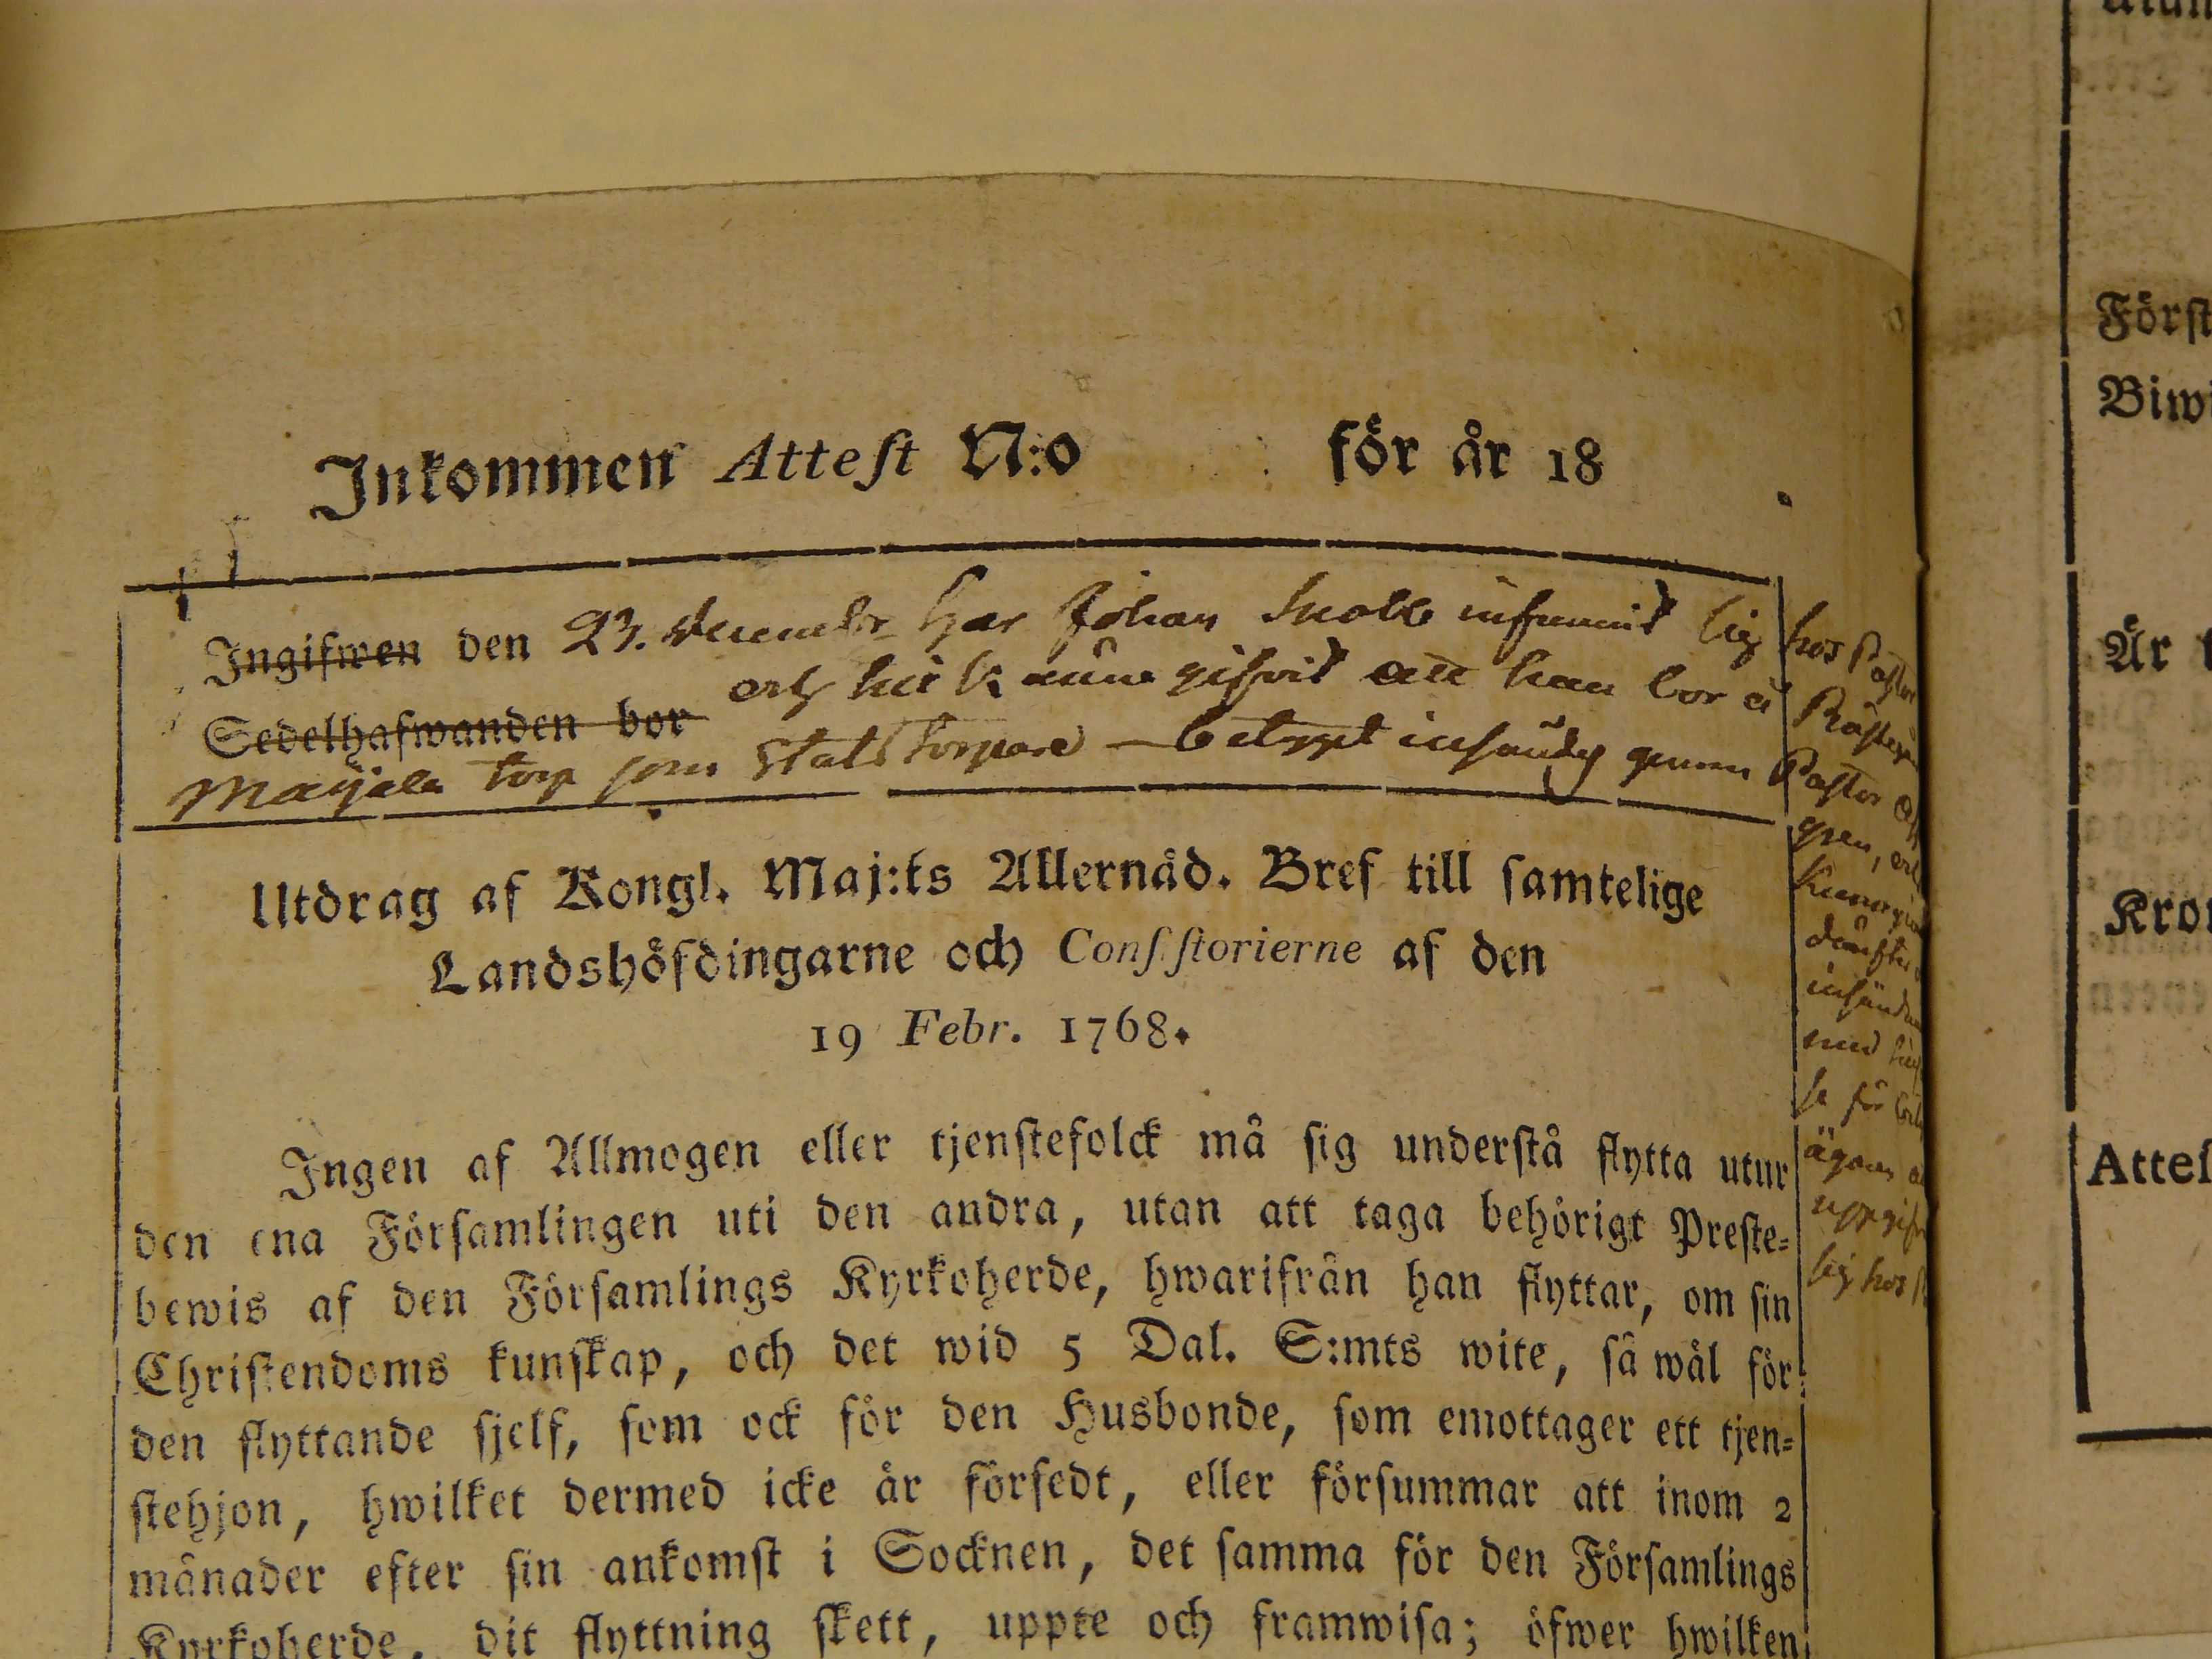 Inkommen Attest N:o för år 18
Ingifwen den 23. December har Johan infunnit sig hos Pastor
Sedelhafwanden bor och att han bor å
torp som Statstorpare — betyget genom Pastor
Utdrag af Kongl. Maj:ts Allernåd. Bref till samtelige
Landshöfdingarne och Consistorierne af den
19 Febr. 1768.
Ingen af Allmogen eller tjenstefolck må sig understå flytta utur
den ena Församlingen uti den andra, utan att taga behörigt Preste-
bewis af den Församlings Kyrkoherde, hwarifrån han flyttar, om sin
Christendoms kunskap, och det wid 5 Dal. S:mts wite, så wäl för
den flyttande sjelf, som ock för den Husbonde, som emottager ett tjen-
stehjon, hwilket dermed icke är försedt, eller försummar att inom 2
månader efter sin ankomst i Socknen, det samma för den Församlings
Kyrkoherde, dit flyttning skett, uppte och framwisa; öfwer hwilken
sig hos
Först
Biw
Är
Kro
Attes